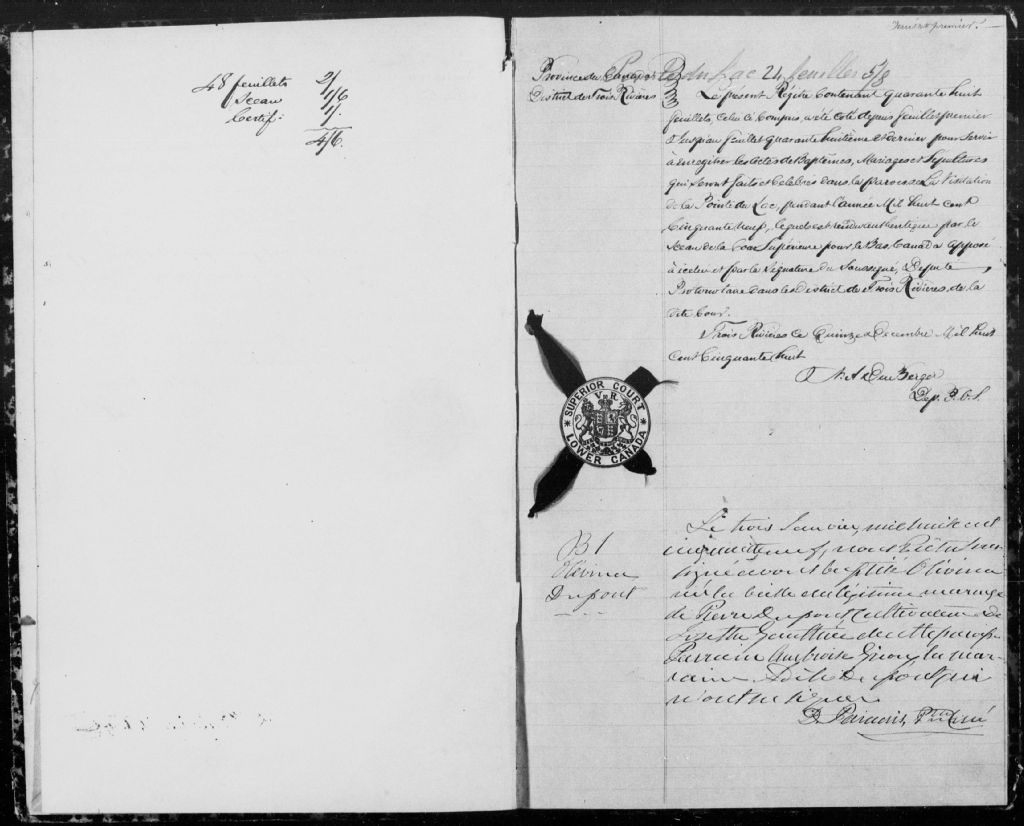 48 feuillets 2/
Sceau 1/6
Certif: 1/.
4/6.
feuillet premier.
Province du Canada
District des Trois Rivières
P. du Lac 24 feuilles 5/8
Le présent Régitre Contenant quarante huit
feuillets, Celui ci Compris, a été coté depuis feuillet premier
Jusqu'au feuillet quarante huitième et dernier pour servir
à enregitrer les actes de Baptêmes, Mariages et Sépultures
qui seront faits et célébrés dans la paroisse La Visitation
de la Pointe du Lac, pendant l'année Mil huit cent
Cinquante neuf, lequel est rendu authentique par le
Sceau de la Cour Supérieure pour le Bas Canada apposé
à icelui et par la Signature du Soussigné, Député
Protonotaire dans le District de Trois Rivières, de la
dite Cour.
Trois Rivières ce Quinze Décembre Mil huit
Cent Cinquante huit
Dep. P. C. S.
SUPERIOR COURT
V R
LOWER CANADA
B 1
Olévina
Dupont
Le trois Janvier, mil huit cent
cinquante neuf, nous Prêtre sous
signé avons baptisé Olévina
née la veille du légitime mariage
de Pierre Dupont Cultivateur & de
Lisette Gauthier de cette paroisse
Parrain Ambroise Guion la mar-
raine Dupont qui
n'ont su signer
Ptre Curé